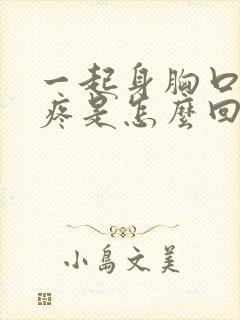 一起身胸口
疼是怎麼回
小島文美